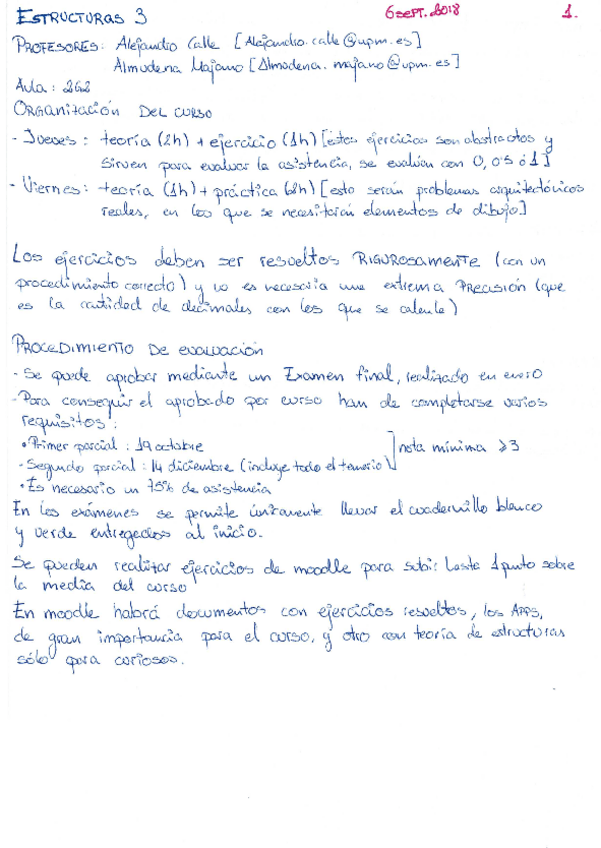 ESTRUCTURAS 3
6 SEPT. 2018
1.
PROFESORES: Alejandro Calle [Alejandro.calle@upm.es]
Almudena Majano [Almudena.majano@upm.es]
Aula: 262
ORGANIZACIÓN DEL CURSO
- Jueves: teoría (2h) + ejercicio (1h) [estos ejercicios son abstractos y
sirven para evaluar la asistencia, se evalúan con 0, 0'5 ó 1]
- Viernes: teoría (1h) + práctica (2h) [esto serán problemas arquitectónicos
reales, en los que se necesitarán elementos de dibujo]
Los ejercicios deben ser resueltos RIGUROSAMENTE (con un
procedimiento correcto) y no es necesaria una extrema PRECISIÓN (que
es la cantidad de decimales con los que se calcule)
PROCEDIMIENTO DE EVALUACIÓN
- Se puede aprobar mediante un Examen final, realizado en enero
- Para conseguir el aprobado por curso han de completarse varios
requisitos:
• Primer parcial: 19 octubre
- Segundo parcial: 14 diciembre (incluye todo el temario)
] nota mínima ≥3
• Es necesario un 75% de asistencia
En los exámenes se permite únicamente llevar el cuadernillo blanco
y verde entregados al inicio.
Se pueden realizar ejercicios de moodle para subir hasta 1 punto sobre
la media del curso
En moodle habrá documentos con ejercicios resueltos, los APPS,
de gran importancia para el curso, y otro con teoría de estructuras
sólo para curiosos.